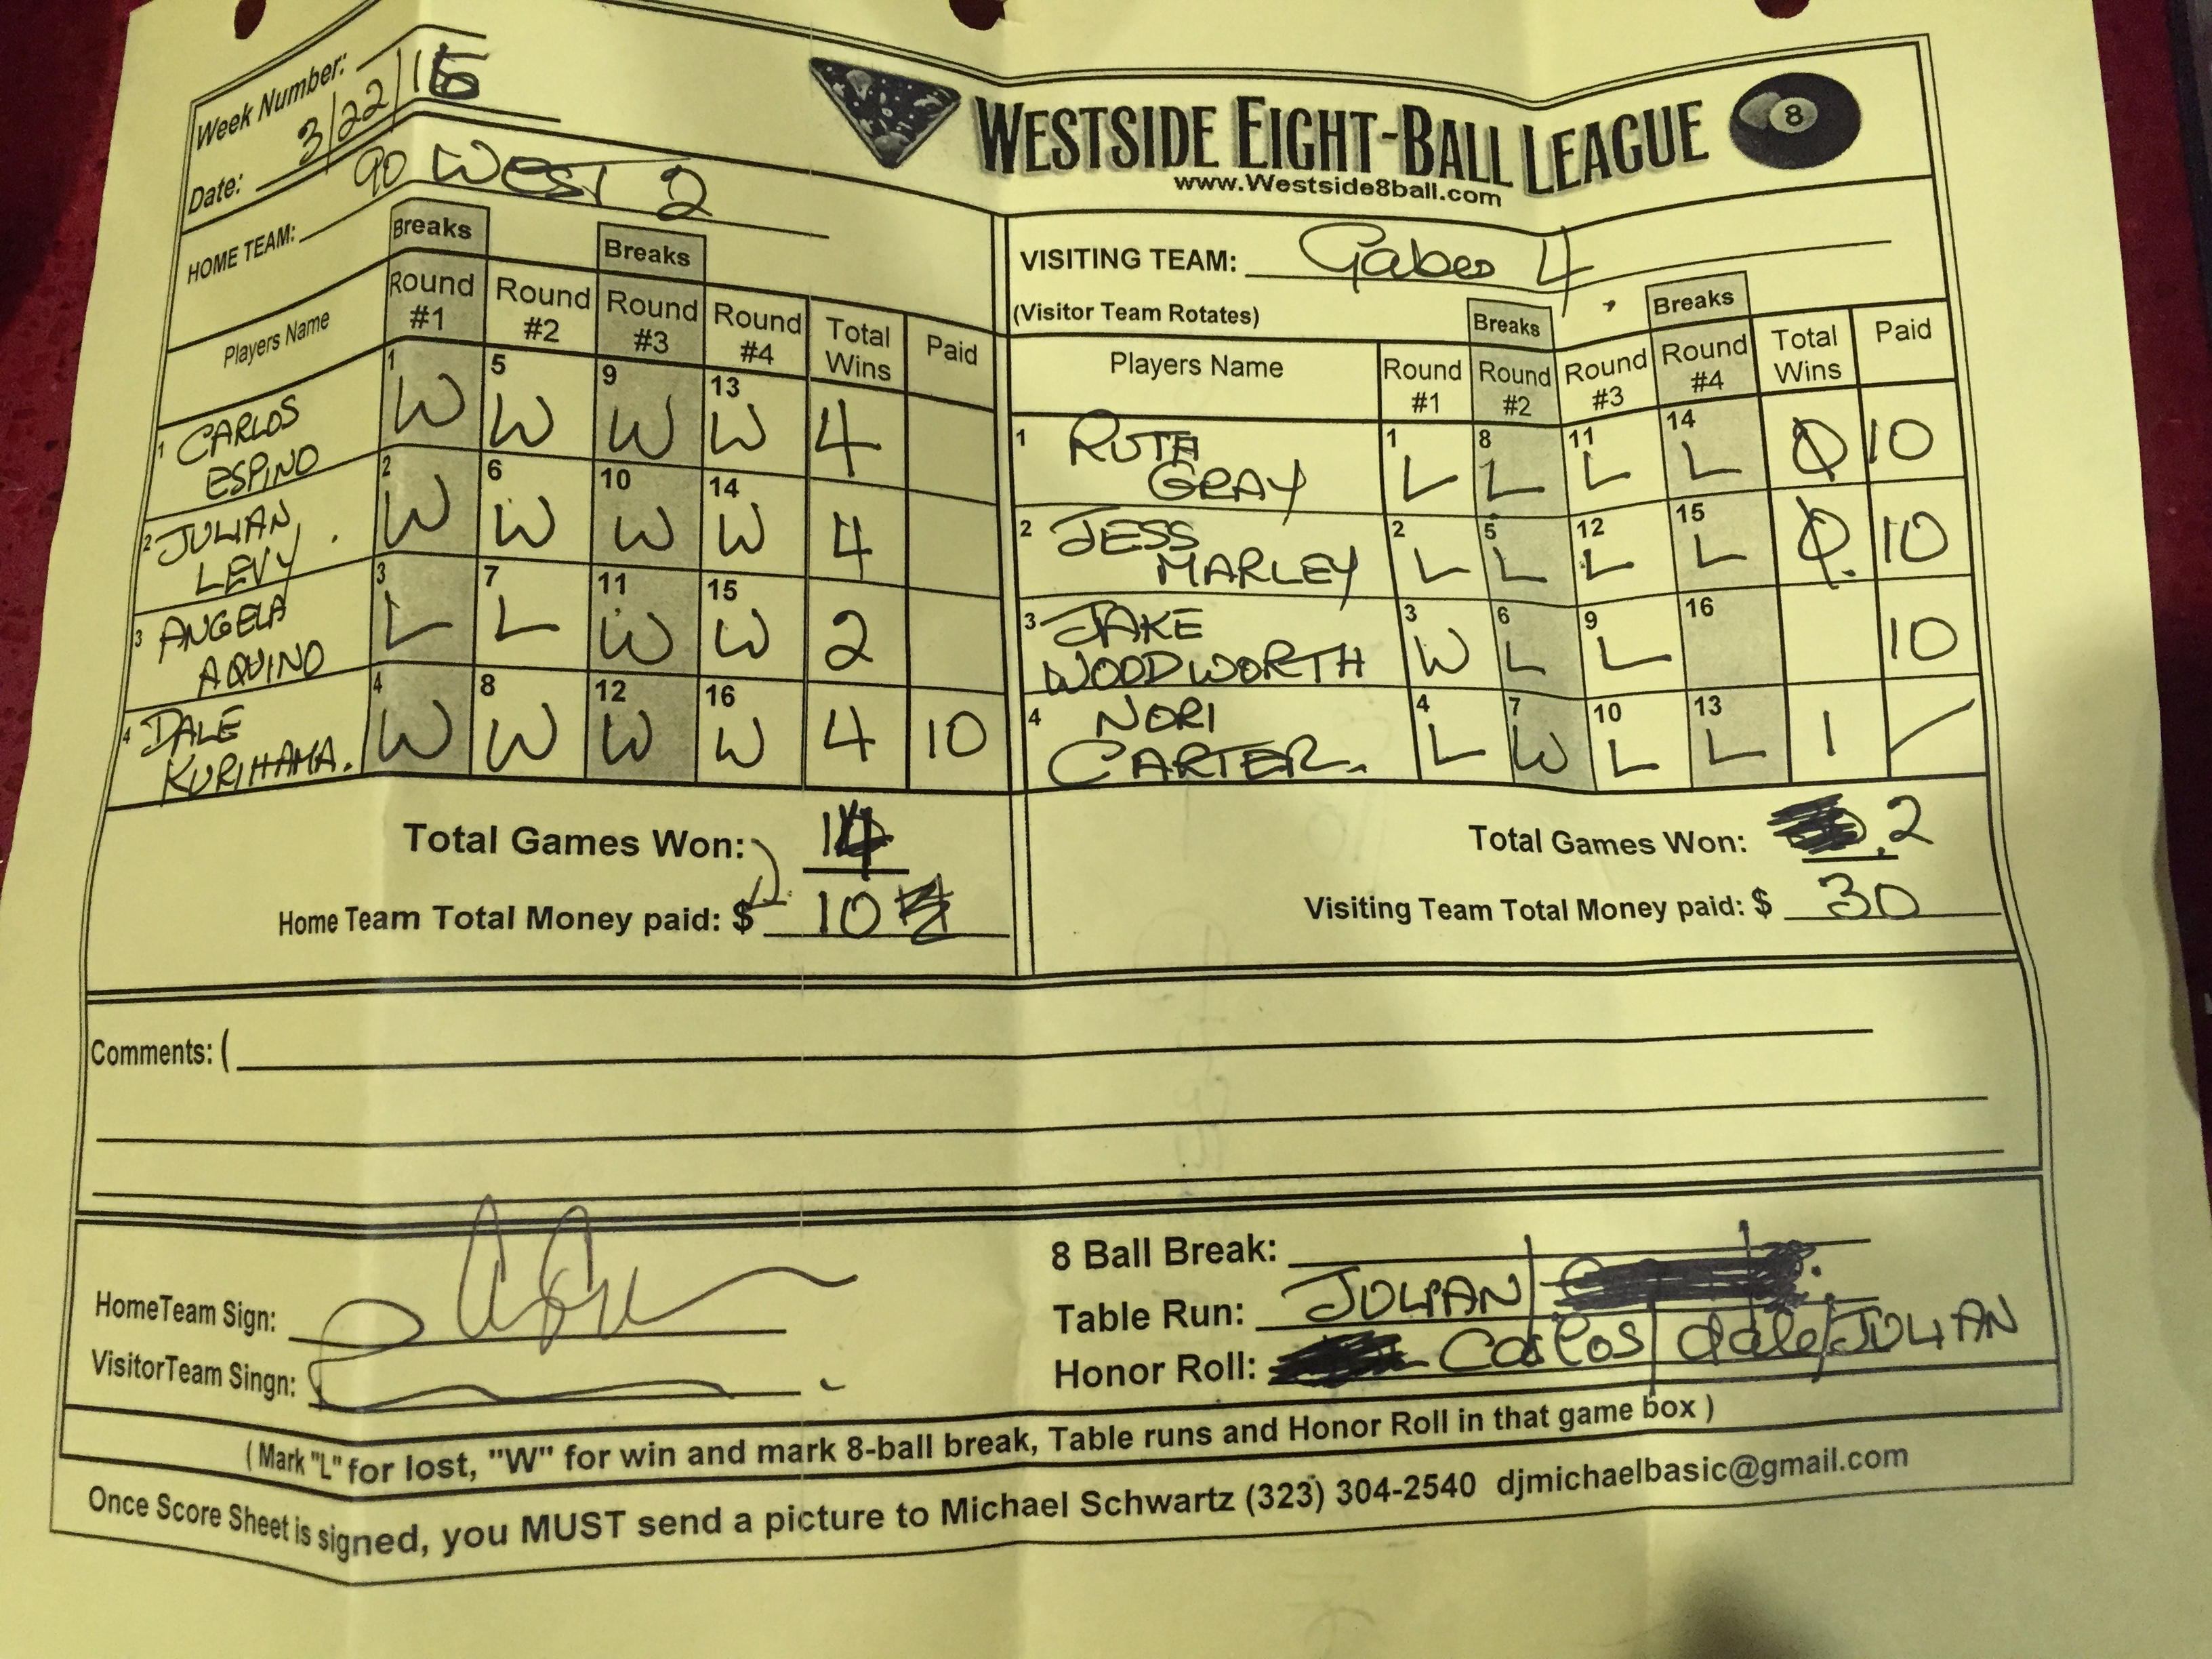 Week Number:
Date: 3/22/16
WESTSIDE EIGHT-BALL LEAGUE
8
www.Westside8ball.com
HOME TEAM: 90 WEST 2
Breaks Breaks
Players Name Round #1 Round #2 Round #3 Round #4 Total Wins Paid
1 CARLOS ESPINO 1 W 5 W 9 W 13 W 4
2 JULIAN LEVY. 2 W 6 W 10 W 14 W 4
3 ANGELA AQUINO 3 L 7 L 11 W 15 W 2
4 DALE KURIHAMA. 4 W 8 W 12 W 16 W 4 10
Total Games Won: 14
Home Team Total Money paid: $ 10
VISITING TEAM: Gabes 4
(Visitor Team Rotates)
Breaks Breaks
Players Name Round #1 Round #2 Round #3 Round #4 Total Wins Paid
1 RUTH GRAY 1 L 8 L 11 L 14 L 0 10
2 JESS MARLEY 2 L 5 L 12 L 15 L 0 10
3 JAKE WOODWORTH 3 W 6 L 9 L 16 10
4 NORI CARTER. 4 L 7 W 10 L 13 L 1
Total Games Won: 2
Visiting Team Total Money paid: $ 30
Comments: (
HomeTeam Sign:
VisitorTeam Singn:
8 Ball Break:
Table Run: JULIAN
Honor Roll: Carlos / dale / JULIAN
( Mark "L" for lost, "W" for win and mark 8-ball break, Table runs and Honor Roll in that game box )
Once Score Sheet is signed, you MUST send a picture to Michael Schwartz (323) 304-2540 djmichaelbasic@gmail.com